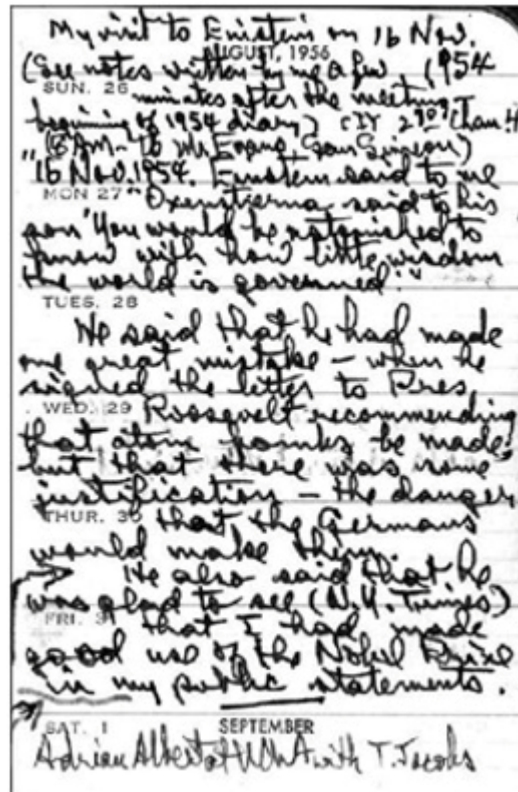 My visit to Einstein on 16 Nov.
AUGUST, 1956
(See notes written by me a few 1954
SUN. 26
minutes after the meeting,
beginning of 1954 diary)
"16 Nov. 1954. Einstein said to me
MON 27
"Oxenstierna said to his
son 'You would be astonished to
know with how little wisdom
the world is governed.'"
TUES. 28
He said that he had made
one great mistake – when he
signed the letter to Pres
WED. 29
Roosevelt recommending
that atom bombs be made,
but that there was some
justification – the danger
THUR. 30
that the Germans
would make them.
He also said that he
was glad to see (N.Y. Times)
FRI. 31
that I had made
good use of the Nobel Prize
in my public statements.
SAT. 1 SEPTEMBER
Adrian Albert of with T. Jacobs